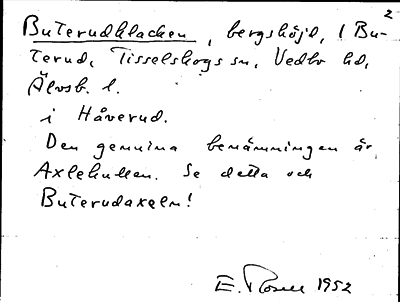 2
Buterudklacken, bergshöjd, i Bu-
terud, Tisselskogs sn, Vedbo hd,
Älvsb. l.
i Håverud.
Den genuina benämningen är
Axlekullen. Se detta och
Buterudaxeln!
E. Rosell 1952